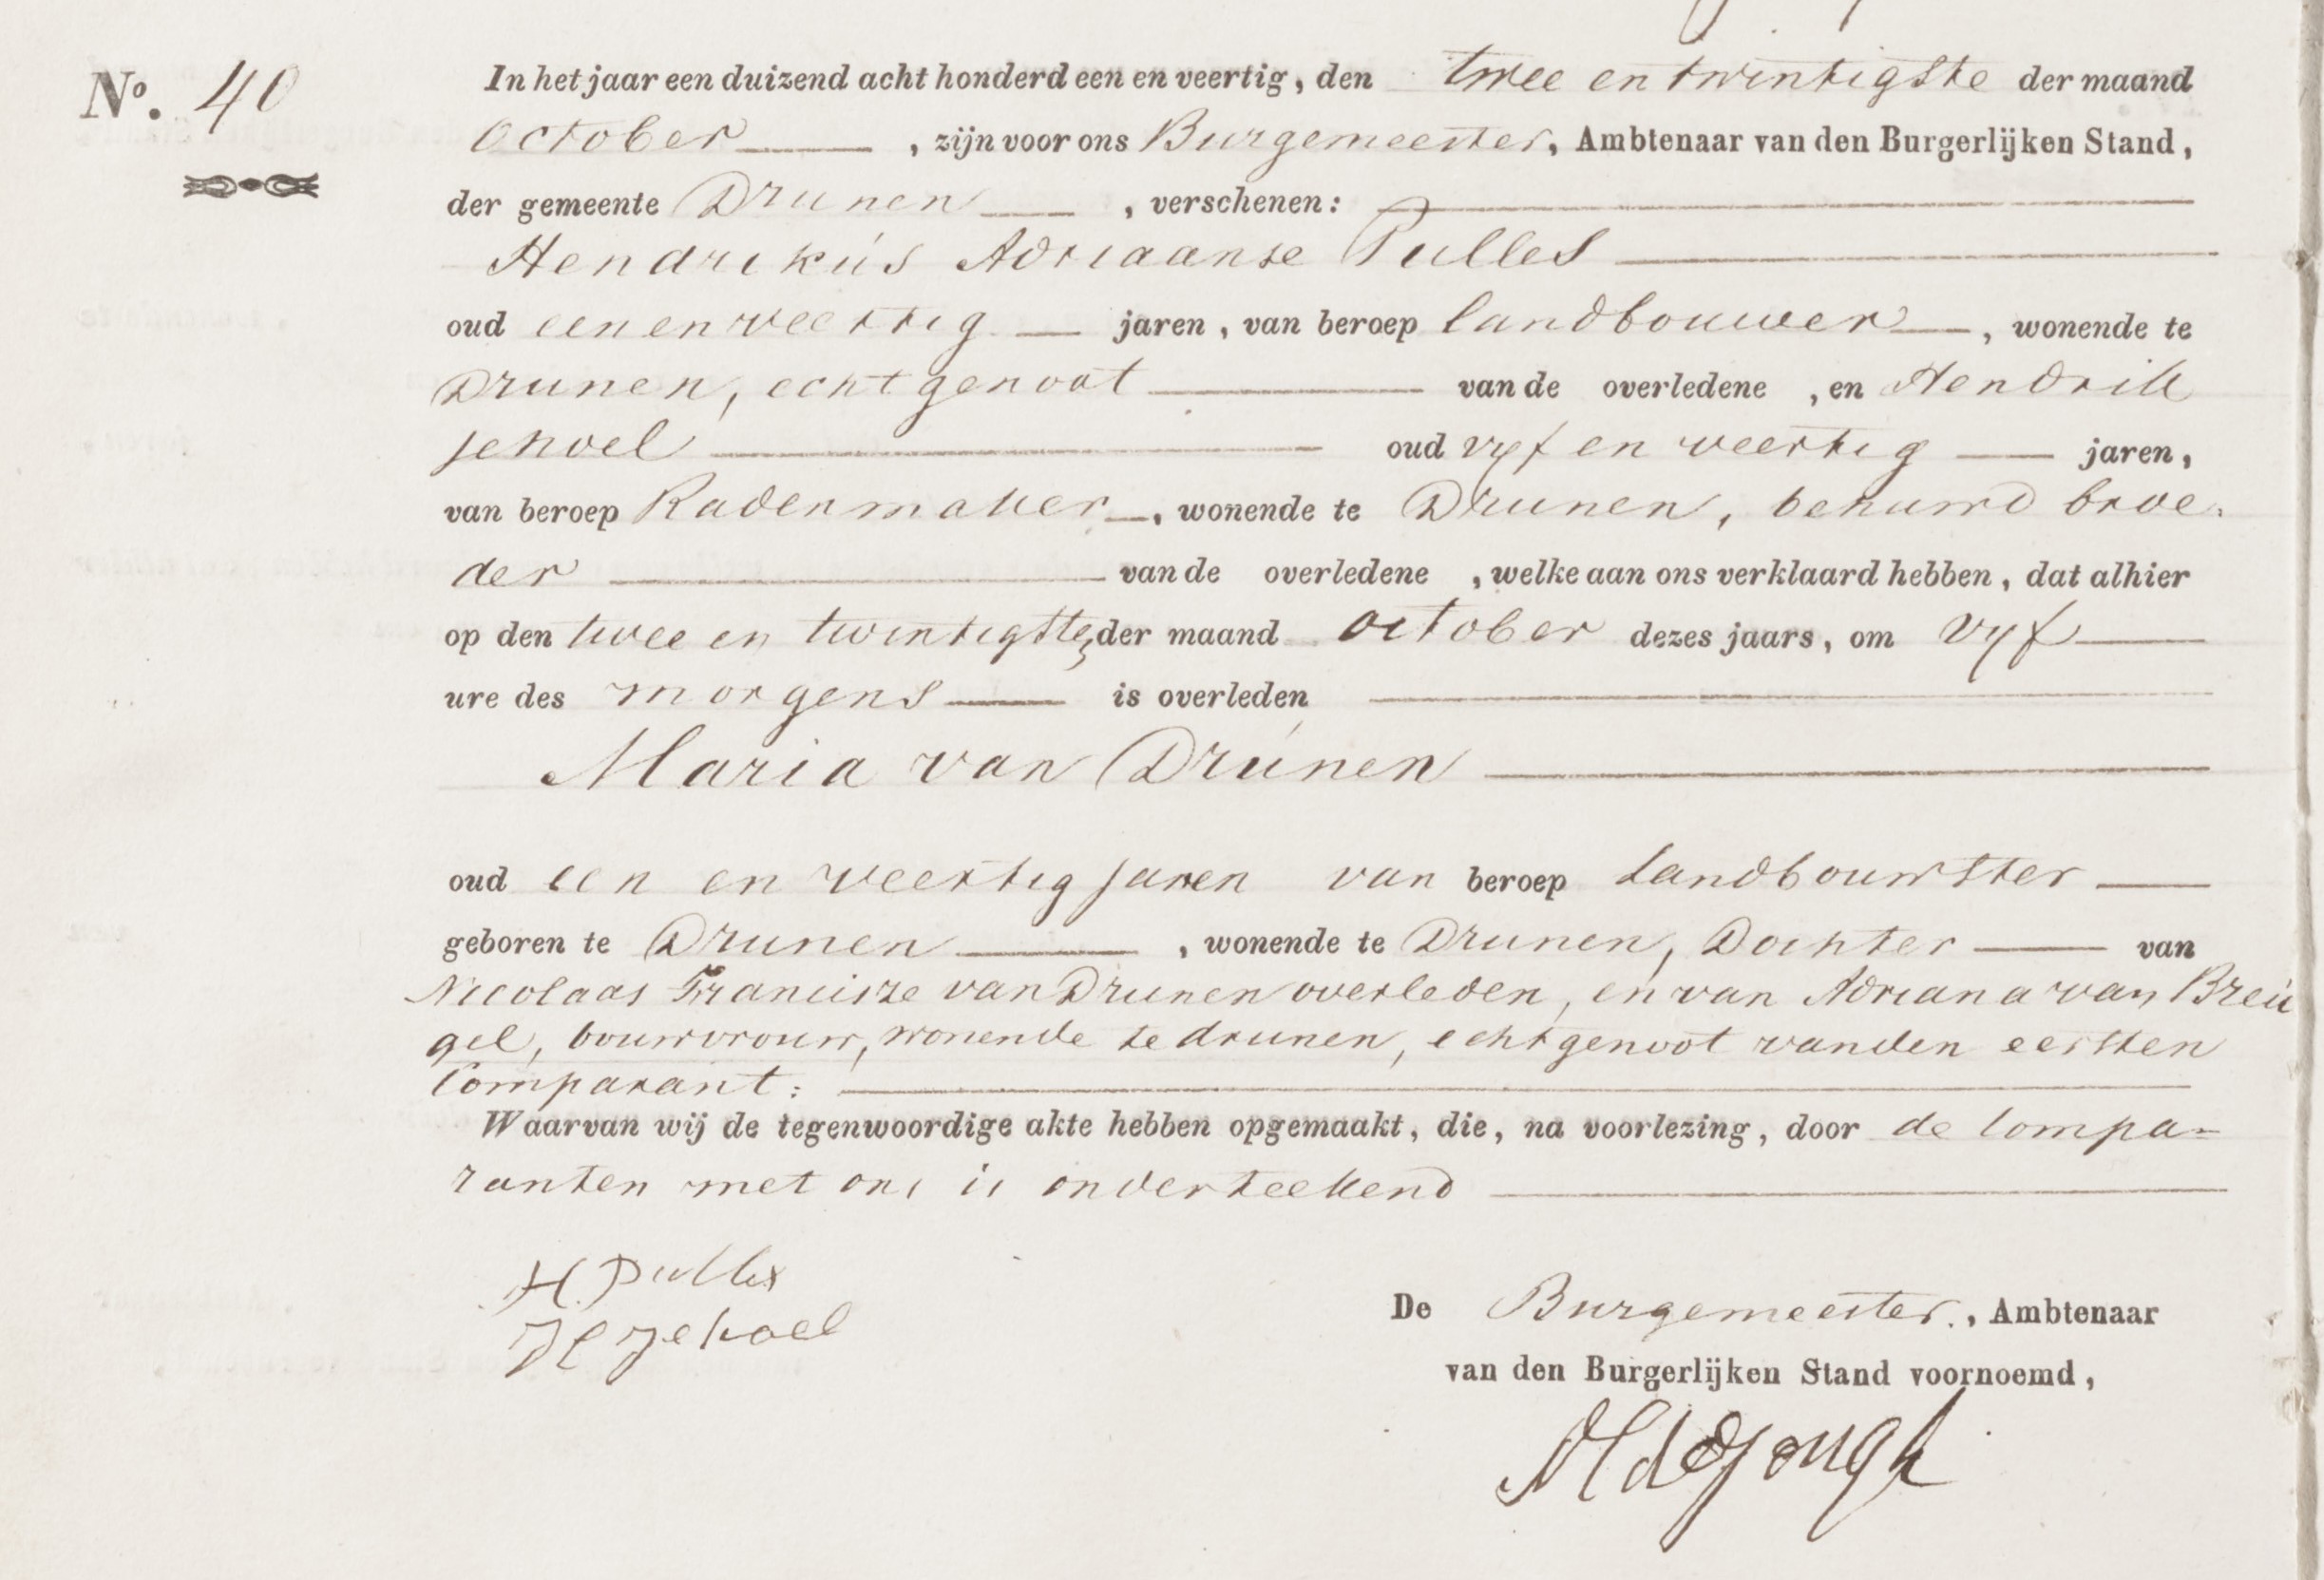 No. 40
In het jaar een duizend acht honderd een en veertig, den twee en twintigste der maand
October , zijn voor ons Burgemeester, Ambtenaar van den Burgerlijken Stand,
der gemeente Drunen , verschenen:
Hendrikús Adriaanse Pulles
oud een en veertig jaren, van beroep landbouwer , wonende te
Drunen, echtgenoot van de overledene , en Hendrik
Jehoel oud vyf en veertig jaren,
van beroep Radenmaker , wonende te Drunen, behuwd broe-
der van de overledene , welke aan ons verklaard hebben, dat alhier
op den twee en twintigste, der maand october dezes jaars, om vyf
ure des morgens is overleden
Maria van Drúnen
oud een en veertig jaren van beroep landbouwster
geboren te Drunen , wonende te Drunen, Dochter van
Nicolaas Francisze van Drunen overleden, en van Adriana van Breú
gel, bouwvrouw, wonende te drunen, echtgenoot van den eersten
Comparant:
Waarvan wij de tegenwoordige akte hebben opgemaakt, die, na voorlezing, door de Compa=
ranten met ons is onderteekend
H. Pulles
H Jehoel
De Burgemeester., Ambtenaar
van den Burgerlijken Stand voornoemd,